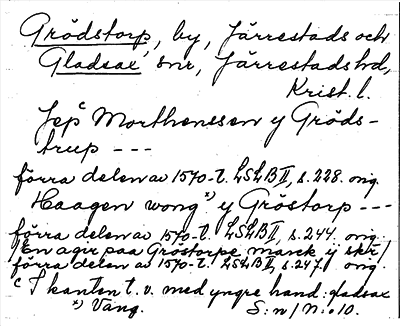 Grödstorp, by, Järrestads och
Gladsax, snr, Järrestads hd,
Krist. l.
Jep^c Morthenssen y Gröds-
trup ---
förra delen av 1570-t. LSLB II, s. 228. orig.
Haagen wong^x) y Gröstorp ---
förra delen av 1570-t. LSLB II, s. 244. orig.
/en agir paa Gröstorpe marck y skr/
förra delen av 1570-t. LSLB II, s. 247. orig.
c I kanten t. v. med yngre hand: gladsax
x) Vang. S:n/N:o 10.